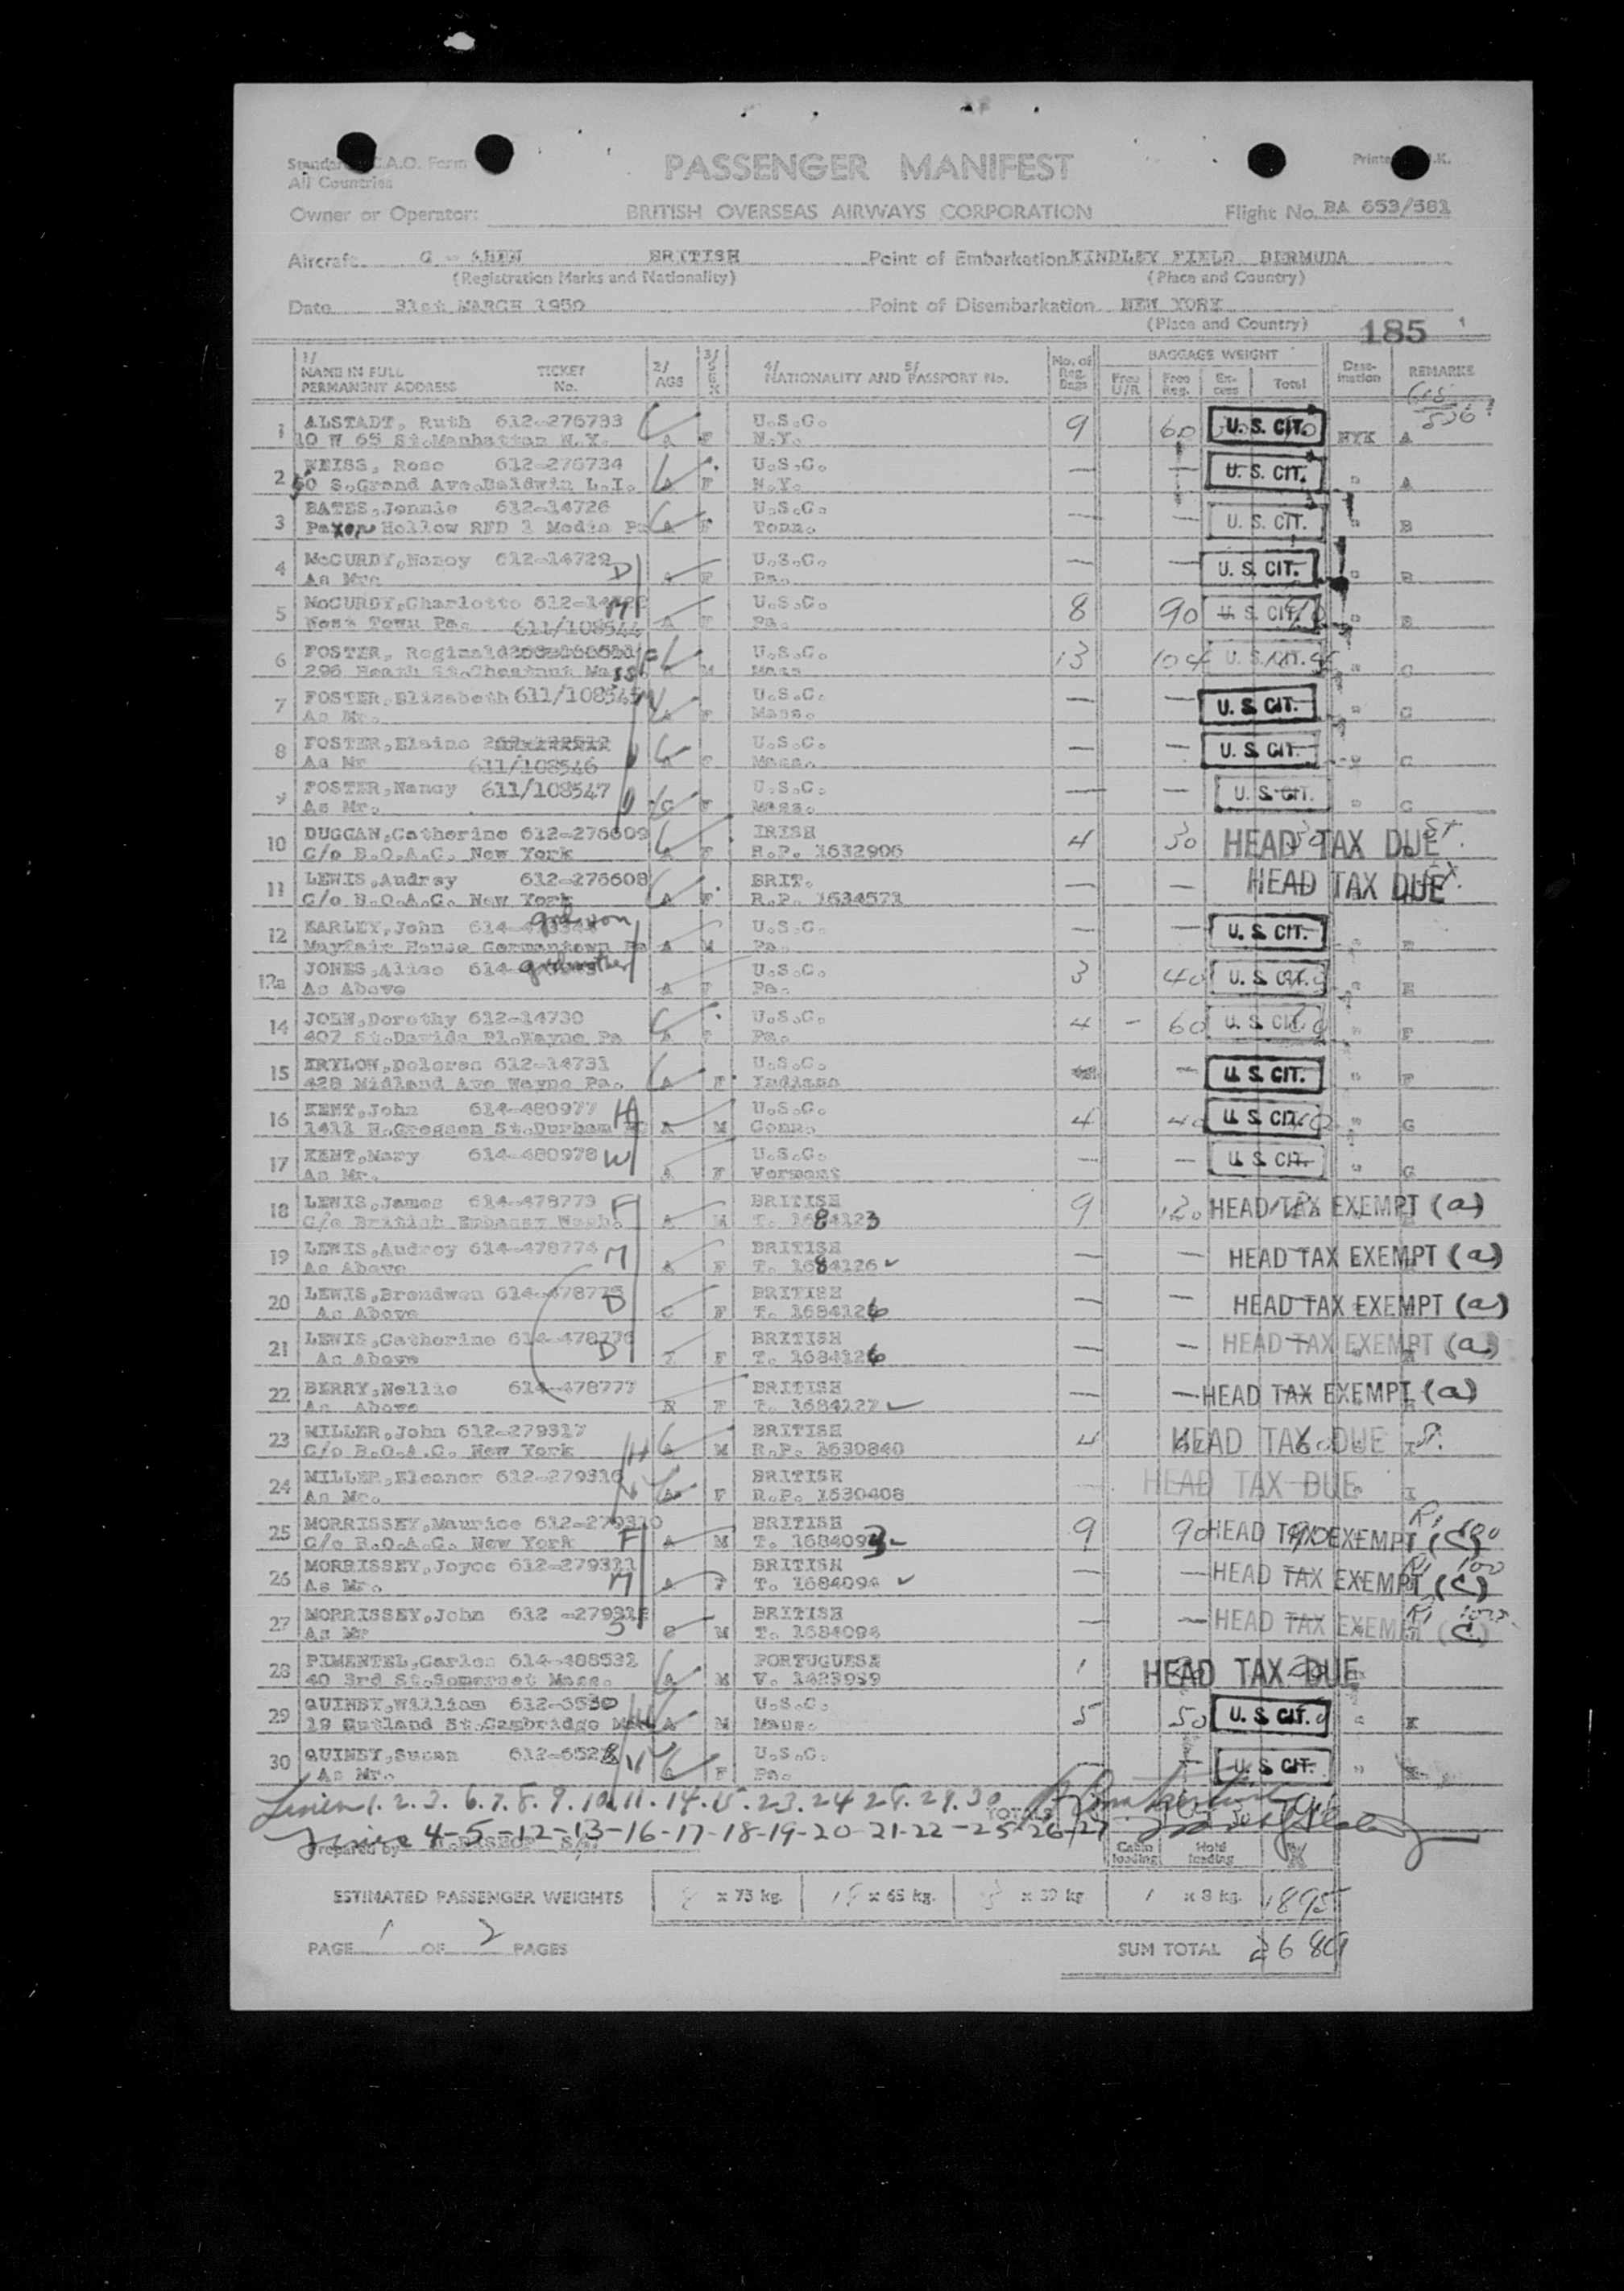 All Countries
PASSENGER MANIFEST
Owner or Operator: BRITISH OVERSEAS AIRWAYS CORPORATION Flight No. BA 653/581
Aircraft BRITISH Point of Embarkation KINDLEY FIELD BERMUDA
(Registration Marks and Nationality) (Place and Country)
Date 31st MARCH 1950 Point of Disembarkation NEW YORK
(Place and Country) 185
1/ NAME IN FULL PERMANENT ADDRESS TICKET No. 2/ AGE 3/ SEX 4/ NATIONALITY AND 5/ PASSPORT No. No. of Reg. Bags BAGGAGE WEIGHT Free U/R Free Reg. Excess Total Destination REMARKS
1 ALSTADT, Ruth 612-276733 U.S.C. 9 60 U.S. CIT.
10 W 65 St.Manhattan N.Y. A F N.Y. NYK A
2 WEISS, Rose 612-276734 U.S.C. — — U.S. CIT.
50 S.Grand Ave.Baldwin L.I. A F N.Y. " A
3 BATES,Jennie 612-14726 U.S.C. — — U.S. CIT.
Paxon Hollow RFD 1 Media Pa A F Tenn. " B
4 McCURDY,Nancy 612-14729 D U.S.C. — — U.S. CIT.
As Mrs A F Pa. " B
5 McCURDY,Charlotte M U.S.C. 8 90 U.S. CIT.
West Town Pa. A F Pa. B
611/108544
6 FOSTER, Reginald U.S.C. 13 104 U.S. CIT.
296 Heath St.Chestnut Mass M Mass " C
7 FOSTER,Elizabeth 611/108545 U.S.C. — — U.S. CIT.
As Mr. A F Mass. " C
8 FOSTER,Elaine U.S.C. — — U.S. CIT.
As Mr 611/108546 A F Mass. " C
9 FOSTER,Nancy 611/108547 D U.S.C. — — U.S. CIT.
As Mr. C F Mass. " C
10 DUGGAN,Catherine 612-276609 IRISH 4 30 HEAD TAX DUE
C/o B.O.A.C. New York A F R.P. 1632906
11 LEWIS,Audrey 612-276608 BRIT. — — HEAD TAX DUE
C/o B.O.A.C. New York A F R.P. 1634571
12 KARLEY,John grdson U.S.C. — — U.S. CIT.
Mayfair House Germantown Pa A M Pa. " E
12a JONES,Alice grdmother U.S.C. 3 40 U.S. CIT.
As Above A F Pa. " E
14 JOHN,Dorothy 612-14730 U.S.C. 4 - 60 U.S. CIT.
407 St.Davids Pl.Wayne Pa A F Pa. " F
15 KRYLOW,Dolores 612-14731 U.S.C. — U.S. CIT.
428 Midland Ave Wayne Pa. A F Indiana " F
16 KENT,John 614-480977 H U.S.C. 4 40 U.S. CIT.
1411 N.Gregson St.Durham A M Conn. " G
17 KENT,Mary 614-480978 W U.S.C. — — U.S. CIT.
As Mr. A F Vermont " G
18 LEWIS,James 614-478773 F BRITISH 9 120 HEAD TAX EXEMPT (a)
C/o British Embassy Wash. A M T. 1684123
19 LEWIS,Audrey 614-478774 M BRITISH — — HEAD TAX EXEMPT (a)
As Above A F T. 1684126
20 LEWIS,Brendwen 614-478775 D BRITISH — — HEAD TAX EXEMPT (a)
As Above C F T. 1684126
21 LEWIS,Catherine 614-478776 D BRITISH — — HEAD TAX EXEMPT (a)
As Above F T. 1684126
22 BERRY,Nellie 614-478777 BRITISH — — HEAD TAX EXEMPT (a)
As Above F T. 1684127
23 MILLER,John 612-279317 H BRITISH 4 HEAD TAX DUE
C/o B.O.A.C. New York A M R.P. 1630840 I
24 MILLER,Eleanor 612-279316 BRITISH HEAD TAX DUE
As Mr. A F R.P. 1630408 I
25 MORRISSEY,Maurice 612-279310 F BRITISH 9 90 HEAD TAX EXEMPT (C)
C/o B.O.A.C. New York A M T. 1684093
26 MORRISSEY,Joyce 612-279311 M BRITISH — — HEAD TAX EXEMPT (C)
As Mr. A F T. 1684094
27 MORRISSEY,John S BRITISH — — HEAD TAX EXEMPT (C)
As Mr C M T. 1684094
28 PIMENTEL,Carlos 614-488532 PORTUGUESE 1 HEAD TAX DUE
40 3rd St.Somerset Mass. A M V. 1423939
29 QUINBY,William U.S.C. 5 50 U.S. CIT.
19 Rutland St.Cambridge A M Mass. " K
30 QUINBY,Susan U.S.C. U.S. CIT.
As Mr. F Pa. "
1. 2. 3. 6. 7. 8. 9. 10. 11. 14. 15. 23. 24 28. 29. 30 TOTALS
4-5-12-13-16-17-18-19-20-21-22-25-26-27
Prepared by Cabin loading Hold loading
ESTIMATED PASSENGER WEIGHTS x 75 kg. x 65 kg. x 39 kg 1 x 8 kg. 1895
PAGE 1 OF 2 PAGES SUM TOTAL